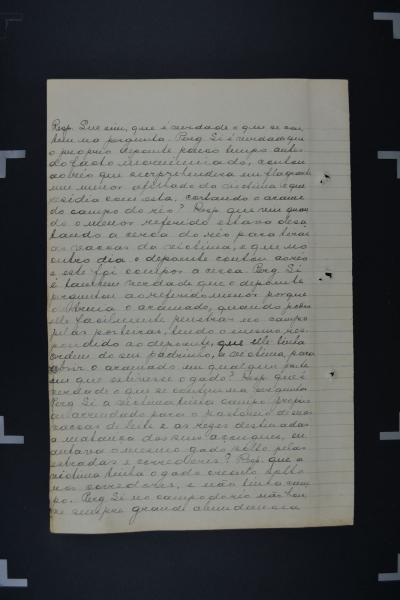 Resp. Que sim, que é verdade o que se con
tem na pergunta. Perg. Si é verdade que
o proprio depoente pouco tempo antes
do facto denunciado, contou
ao réo que surprehendera em flagrante
um menor afilhado da victima e que
residia com esta, cortando o arame
do campo do réo? Resp. que viu quan
do o menor referido estava desa
tando a cerca do réo para tirar
as vaccas da victima, e que no
outro dia o depoente contou ao réo
e este foi compor a cerca. Perg. Si
é tambem verdade que o depoente
perguntou ao referido menor porque
o abria o aramado, quando podia
elle facilmente penetrar no campo
pelas porteiras, tendo o mesmo res
pondido ao depoente, que elle tinha
ordem do seu padrinho, a victima, para
abrir o aramado em qualquer parte
em que estivesse o gado? Resp. que é
verdade o que se contém na pergunta
Perg. Si a victima tinha campo proprio
ou arrendado para o pastoreio de suas
vaccas de leite e as rezes destinadas
a matança dos seus açougues, ou
andava o mesmo gado solto pelas
estradas e corredores? Resp. que a
victima tinha o gado solto
nos corredores, e não tinha cam
po. Perg. Si no campo do réo não hou
ve sempre grande abundancia